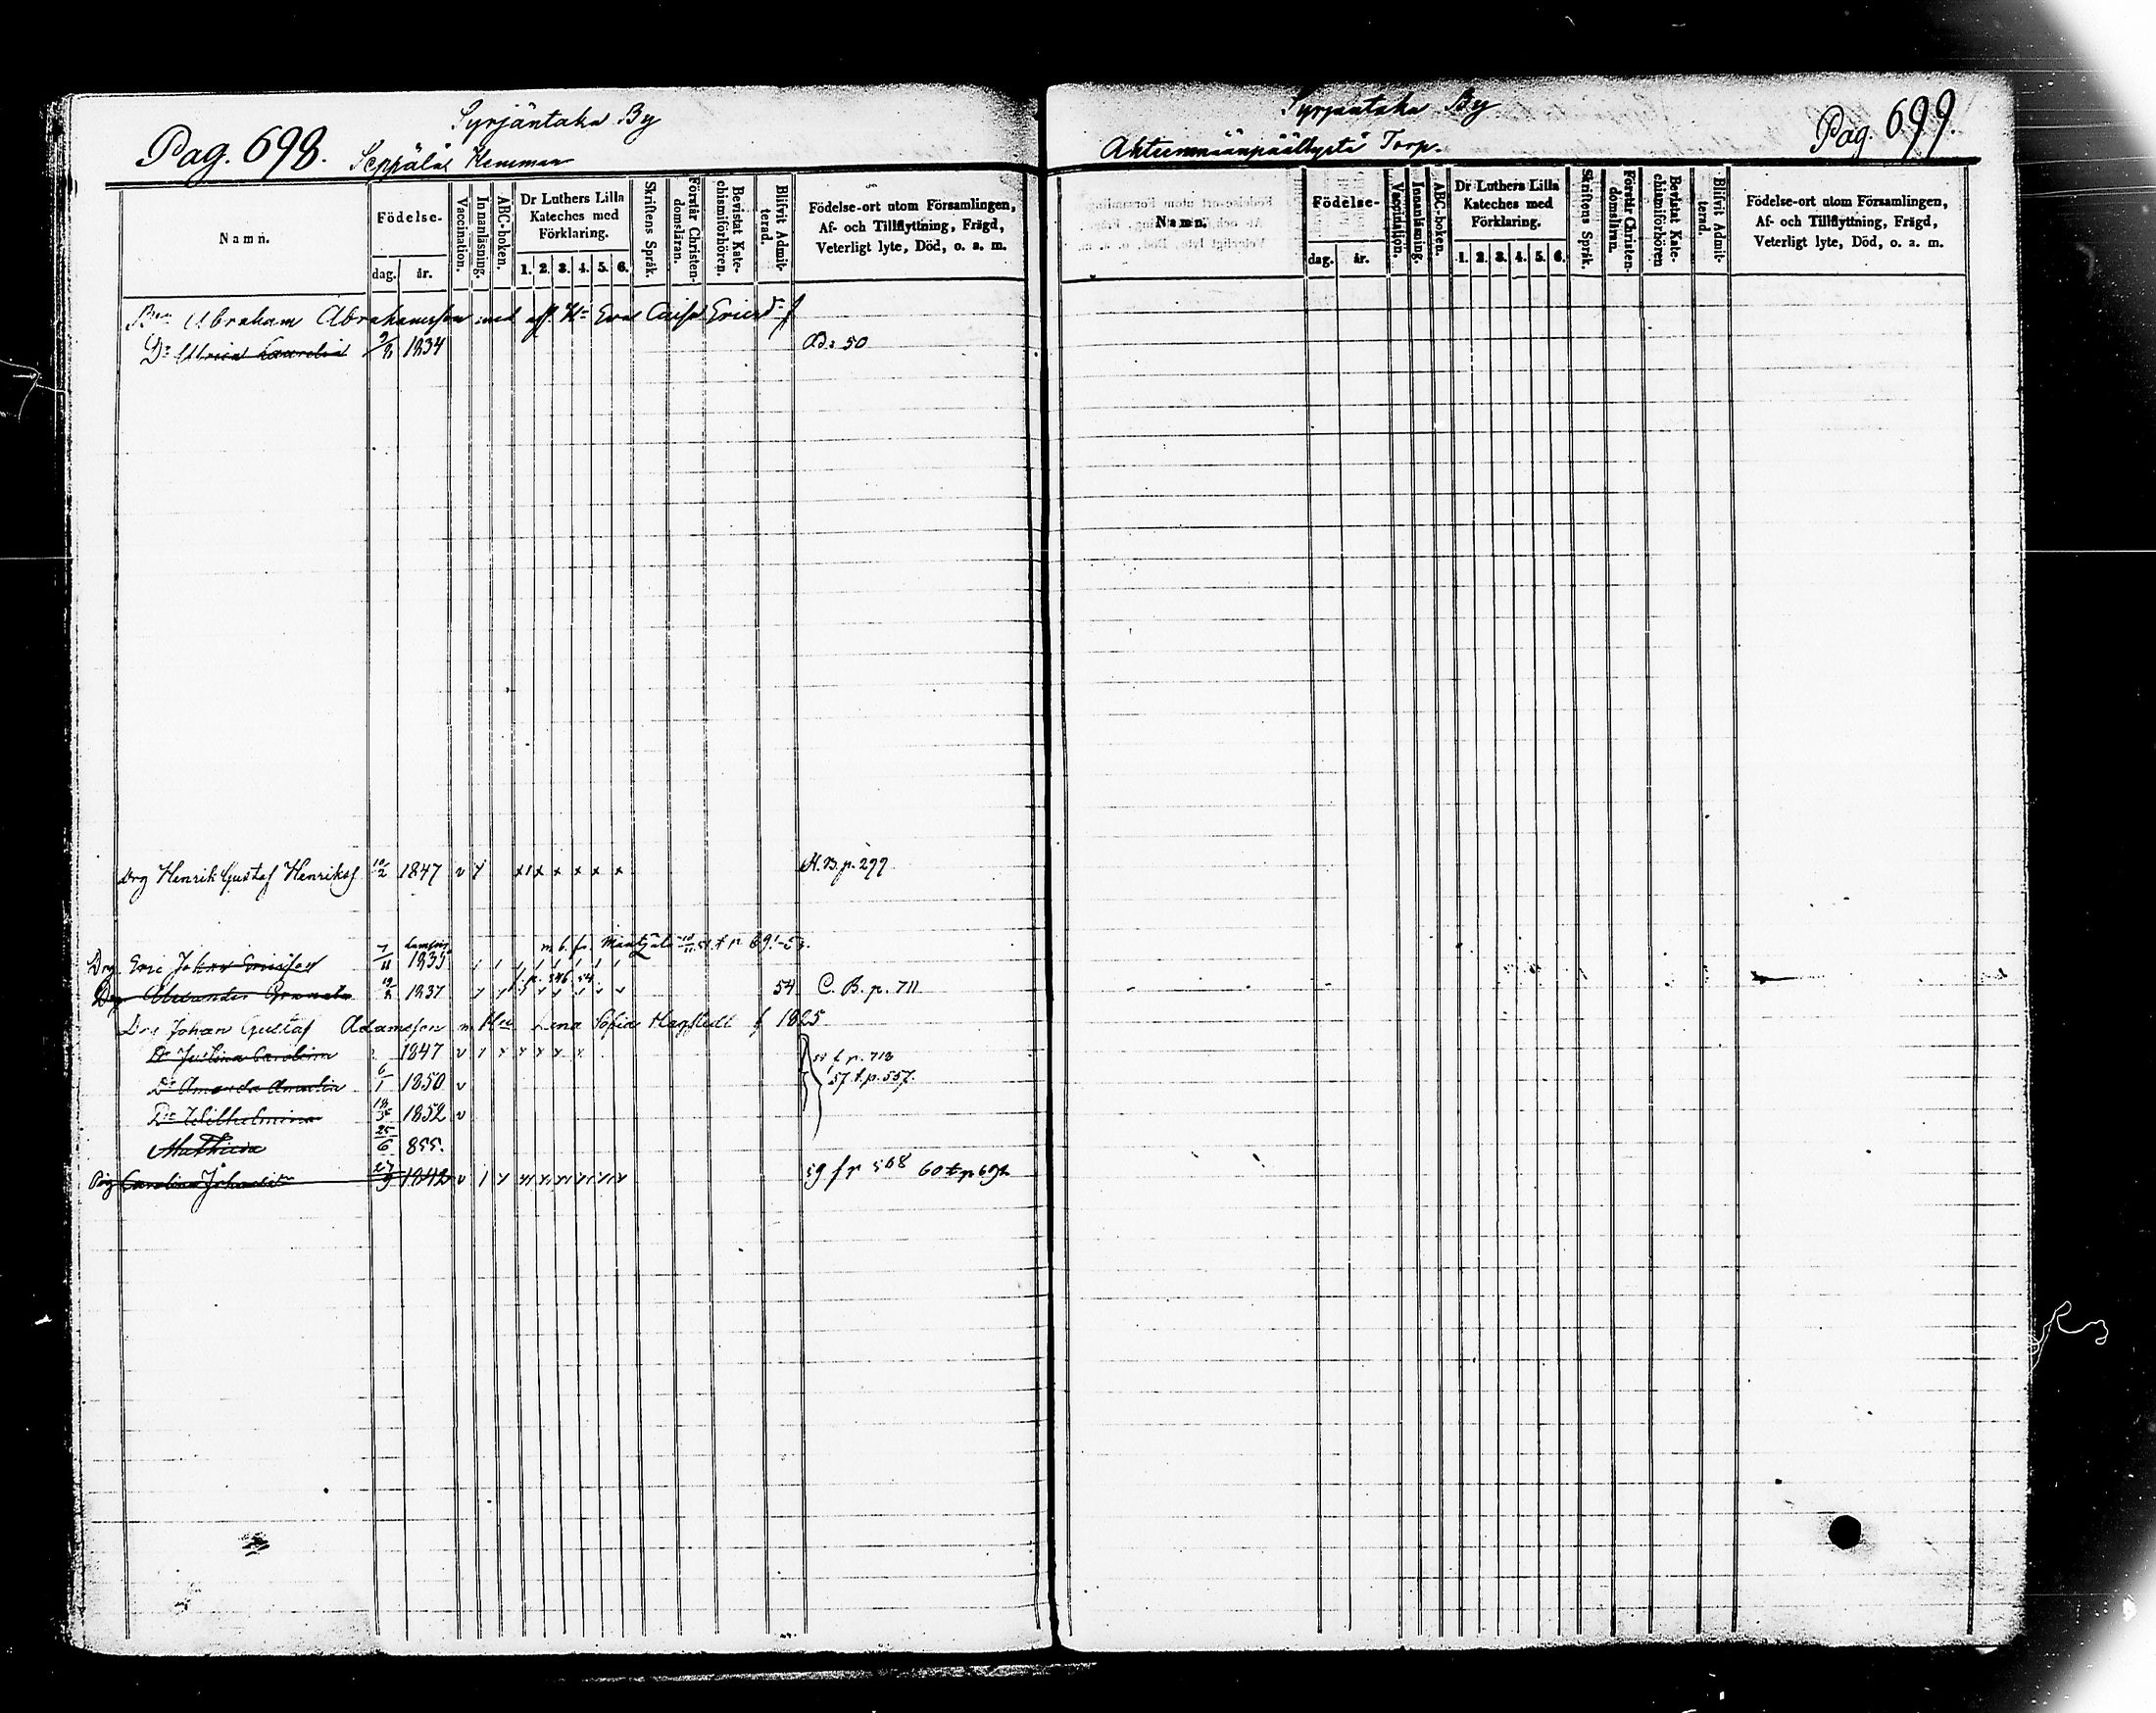 Pag. 698.
Syrjäntaka By
Seppälä Hemman
Namn.
Födelse-
dag. år.
Vaccination.
Innanläsning.
ABC-boken.
Dr Luthers Lilla Kateches med Förklaring.
1. 2. 3. 4. 5. 6.
Skriftens Språk.
Förstår Christen-domsläran.
Bevistat Kate-chismiförhören.
Blifvit Admit-terad.
Födelse-ort utom Församlingen,
Af- och Tillflyttning, Frägd,
Veterligt lyte, Död, o. a. m.
Abraham Abrahamsson med Eva Caisa Ericsd:r
Dr Ulrica 2/8 1834 50
Drg Henrik Gustaf Henrikss 10/2 1847 v x x x x x x H.B.p. 299
Drg Eric Johan Ericsson 7/11 1835
Drg Alexander 19/8 1837 54 C. B. p. 711
Drg Johan Gustaf Adamsson m. Lena Sofia Hagstedt f 1825
Dr Justina Carolina 1847 v t. p. 718
Dr Amanda Amalia 6/1 1850 v 57 t. p. 557.
Dr Wilhelmina 18/5 1852 v
Mathilda 25/6 855.
Pig Carolina 27/9 1842 v 59 f p 568 60 t p 692
Syrjäntaka By
Pag. 699.
Torp.
Namn.
Födelse-
dag. år.
Vaccination.
Innanläsning.
ABC-boken.
Dr Luthers Lilla Kateches med Förklaring.
1. 2. 3. 4. 5. 6.
Skriftens Språk.
Förstår Christen-domsläran.
Bevistat Kate-chismiförhören
Blifvit Admit-terad.
Födelse-ort utom Församlingen,
Af- och Tillflyttning, Frägd,
Veterligt lyte, Död, o. a. m.